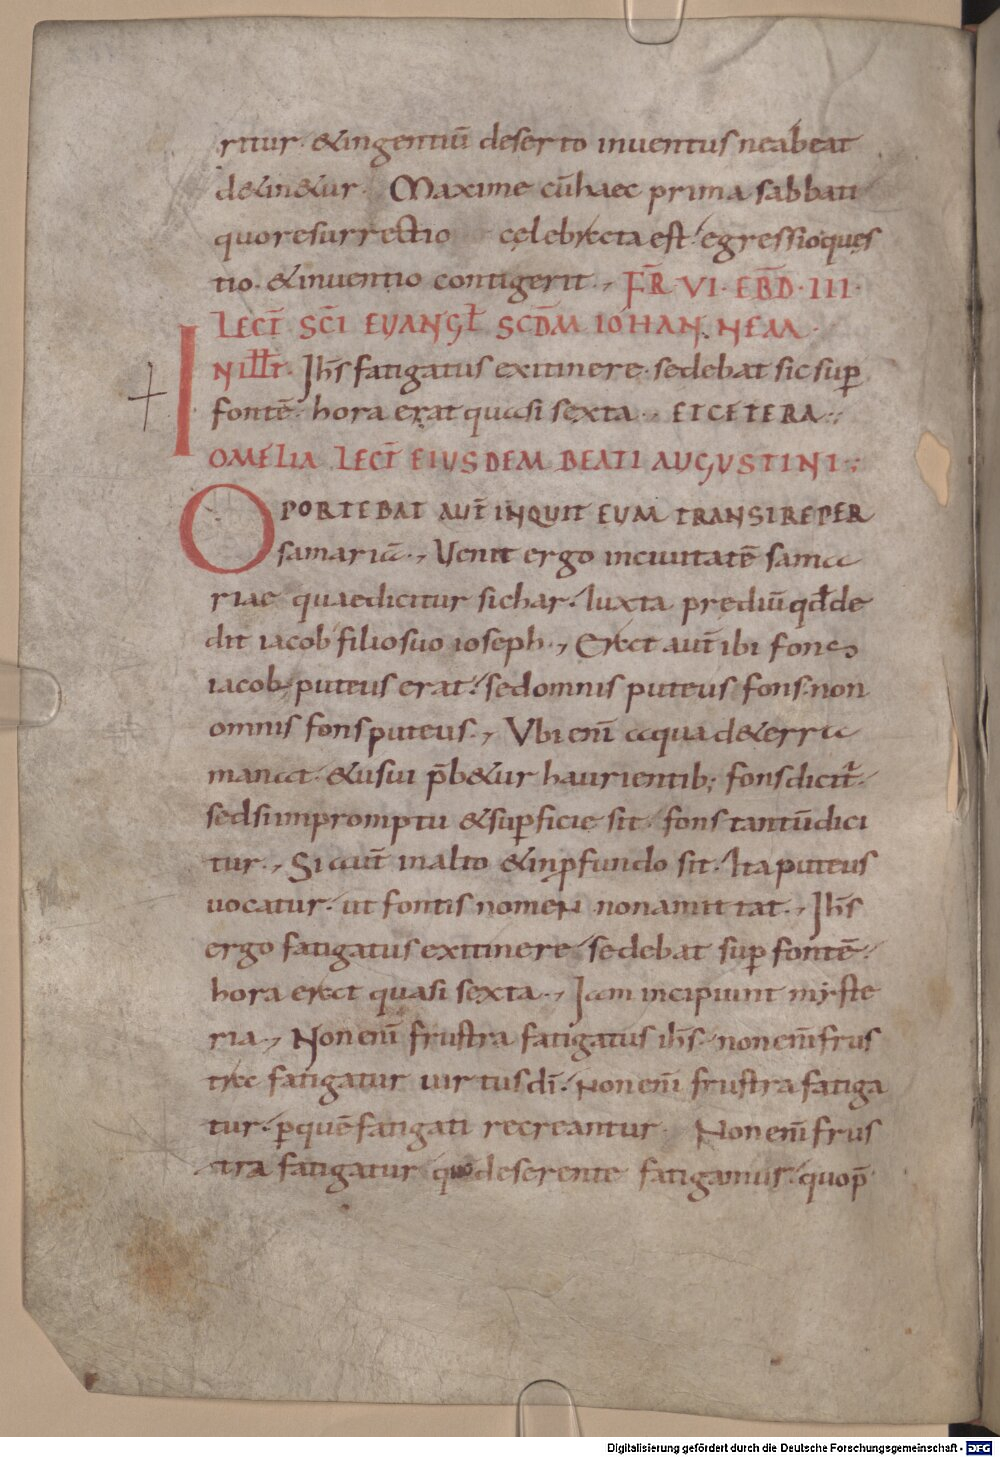 ritur· &ingentiū deserto inventus neabeat
d&in&ur· Maxime cūhaec prima sabbati
quoresurrectio celebrata est· egressioques
tio· &inventio contigerit·, FR̄ VI· EBD̄· III·
LECT̄ SC̄I EUANGL̄ SCD̄M IOHANNEM·
IN ILL̄T· Ih̄s fatigatus exitinere· sedebat sic sup̄
fontē· hora erat quasi sexta· ETCETERA·,
OMELIA LECT̄ EIUSDEM BEATI AUGUSTINI·,
OPORTEBAT AUT̄ INQUIT EUM TRANSIREPER
samariā·, Venit ergo incivitatē sama
riae quaedicitur sichar· Iuxta prediū qd̄de
dit iacob filiosuo ioseph·, Erat aut̄ ibi fons
iacob· puteus erat· sedomnis puteus fons· non
omnis fonsputeus·, Ubi enī aqua d&erra
manat· &usui p̄b&ur haurientib; fonsdicit̄·
sedsiinpromptu &sup̄ficie sit· fons tantūdici
tur·, Si aut̄ inalto &inp̄fundo sit· Ita puteus
vocatur· ut fontis nomen nonamittat·, Ih̄s
ergo fatigatus exitinere· sedebat sup̄ fontē·
hora erat quasi sexta·, Iam incipiunt myste
ria·, Non enī frustra fatigatus ih̄s· non enī frus
tra fatigatur virtus dī· Non enī frustra fatiga
tur· p̄quē fatigati recreantur· Non enī frus
tra fatigatur quodeserente fatigamus· quop̄
Digitalisierung gefördert durch die Deutsche Forschungsgemeinschaft - DFG